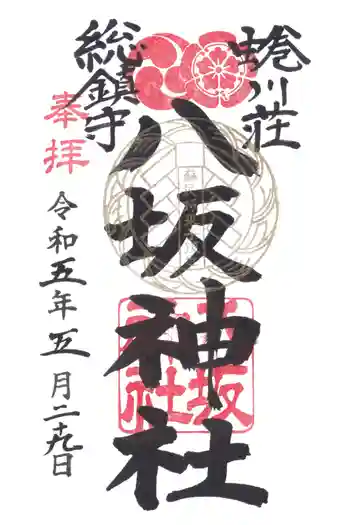 蜷川荘
八坂神社
総鎮守
奉拝
令和五年五月二十九日
八坂
神社